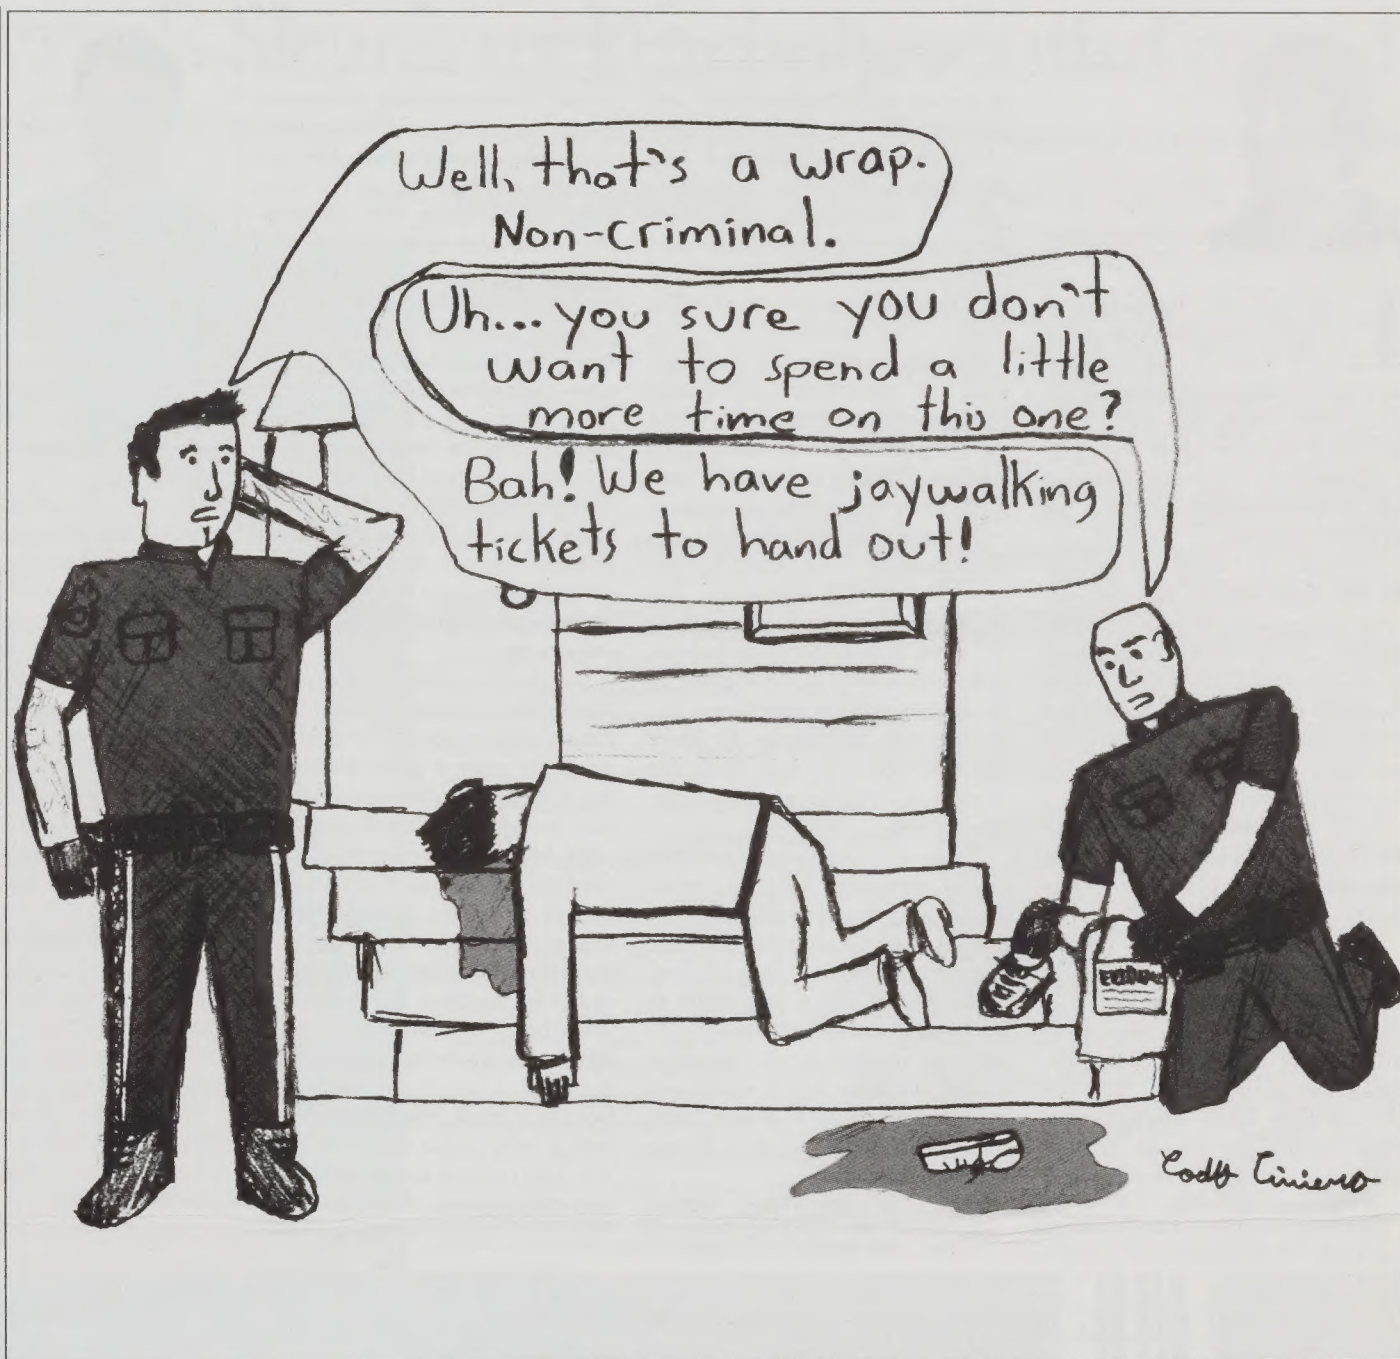 Well, that's a wrap.
Non-criminal.
Uh... you sure you don't
want to spend a little
more time on this one?
Bah! We have jaywalking
tickets to hand out!